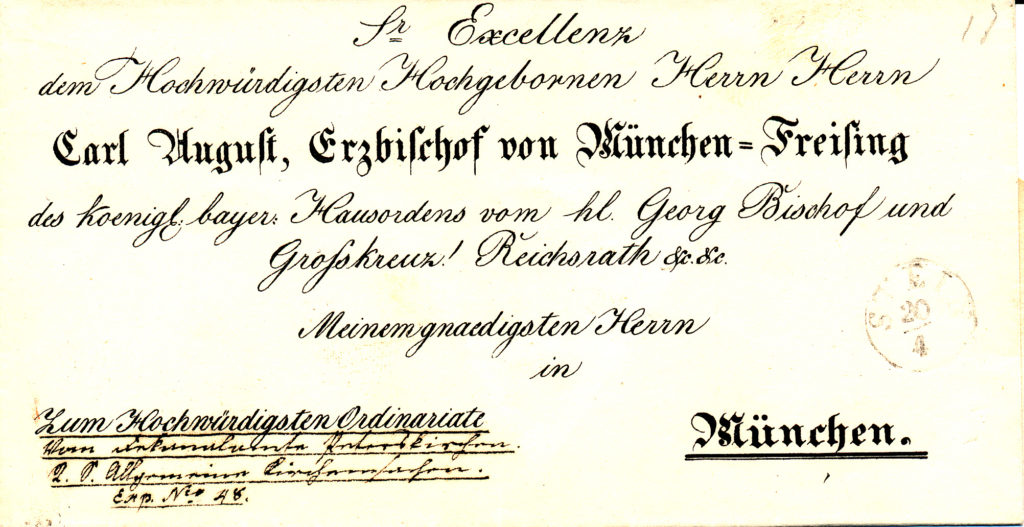 Sr Excellenz
dem Hochwürdigsten Hochgebornen Herrn Herrn
Carl August, Erzbischof von München=Freising
des koenigl. bayer: Hausordens vom hl. Georg Bischof und
Grosskreuz! Reichsrath &c.&c.
Meinem gnaedigsten Herrn
in
München.
Zum Hochwürdigsten Ordinariate
Vom Dekanalamte Peterskirchen.
Allgemeine Kirchensachen.
Exp. Nro 48.
20
4